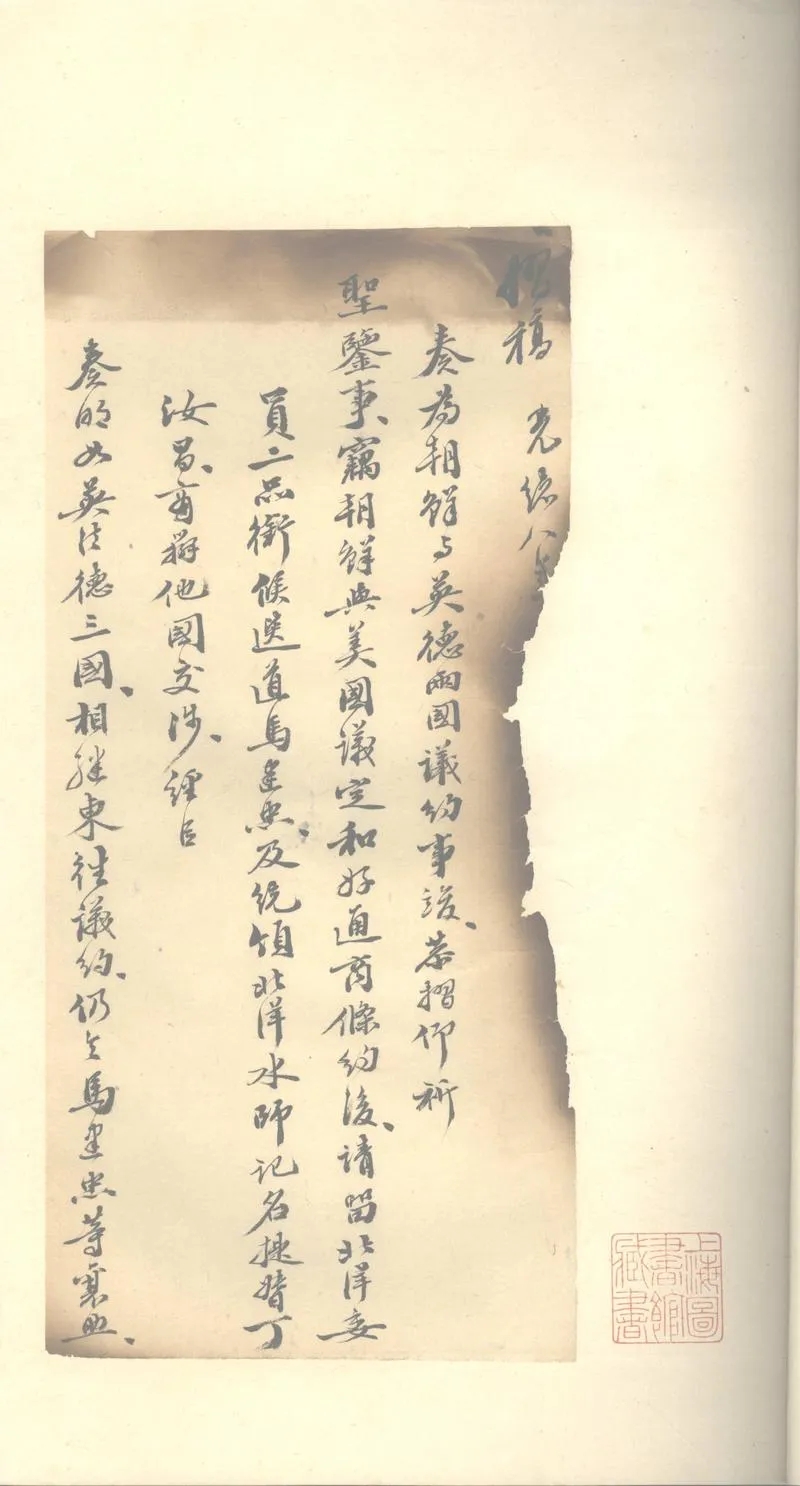 摺稿 光緒八年
奏為朝鮮与英德兩國議約事竣、恭摺仰祈
聖鑒事、竊朝鮮與美國議定和好通商條約後、請留北洋委
員二品銜候選道馬建忠、及統領北洋水師記名提督丁
汝昌、商辦他國交涉、經臣
奏明如英法德三國、相繼東往議約、仍令馬建忠等襄助、
上海圖
書館
藏書